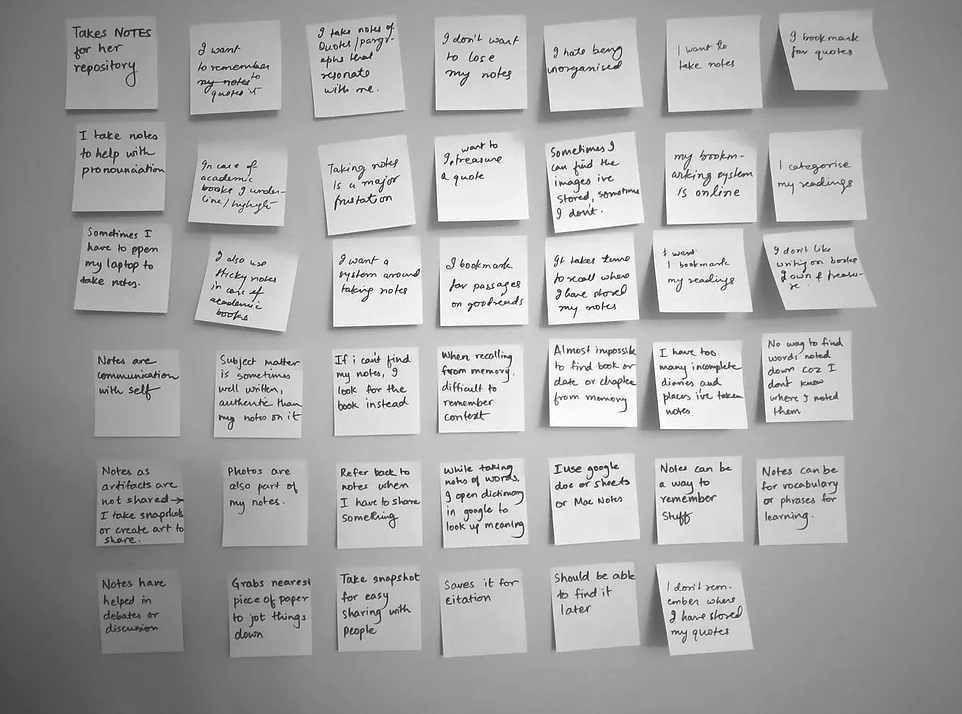 Takes NOTES
for her
repository
I want
to remember
my notes to
quotes it
I take notes of
Quotes/paragr-
aphs that
resonate
with me.
I don't want
to lose
my notes
I hate being
unorganised
I want to
take notes
I bookmark
for quotes
I take notes
to help with
pronounciation
In case of
academic
books I under-
line/highlight
Taking notes
Is a major
frustation
I want to
treasure
a quote
Sometimes I
can find the
images ive
stored, sometimes
I don't.
my bookm-
arking system
is online
I categorise
my readings
Sometimes I
have to open
my laptop to
take notes.
I also use
sticky notes
in case of
academic
books
I want a
system around
taking notes
I bookmark
for passages
on goodreads
It takes time
to recall where
I have stored
my notes
I want
I bookmark
my readings
I don't like
writing on books
I own & treasu-
re.
Notes are
communication
with self
Subject matter
is sometimes
well written,
authentic than
my notes on it
If i can't find
my notes, I
look for the
book instead
When recalling
from memory,
difficult to
remember
context
Almost impossible
to find book or
date or chapter
from memory
I have too
many incomplete
diaries and
places i've taken
notes.
No way to find
words noted
down coz I
don't know
where I noted
them
Notes as
artifacts are
not shared →
I take snapshots
or create art to
share.
Photos are
also part of
my notes.
Refer back to
notes when
I have to share
something
While taking
notes of words,
I open dictionary
in google to
look up meaning
I use google
doc or sheets
or Mac Notes
Notes can be
a way to
remember
stuff
Notes can be
for vocabulary
or phrases for
learning.
Notes have
helped in
debates or
discussion
Grabs nearest
piece of paper
to jot things
down
Take snapshot
for easy
sharing with
people
Saves it for
citation
Should be able
to find it
later
I don't rem-
ember where
I have stored
my quotes